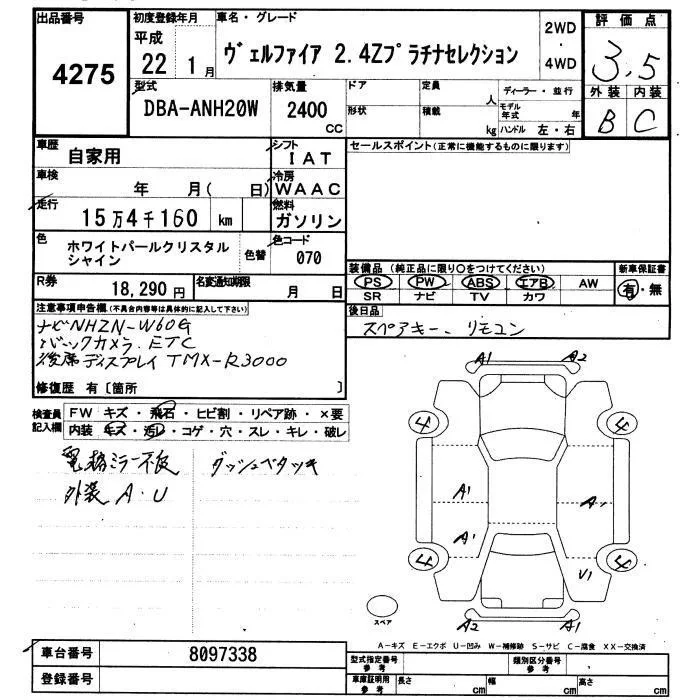 出品番号
4275
初度登録年月
平成
22 1月
車名・グレード
ヴェルファイア 2.4Zプラチナセレクション
2WD
・
4WD
評価点
3.5
外装 内装
B C
型式
DBA-ANH20W
排気量
2400
cc
ドア
形状
定員
人
積載
kg
ディーラー・並行
モデル年式 年
ハンドル 左・右
車歴
自家用
シフト
IAT
車検
年 月( 日)
冷房
WAAC
走行
15万4千160 km
燃料
ガソリン
色
ホワイトパールクリスタル
シャイン
色替
色コード
070
R券
18,290円
名変通知期限
月 日
セールスポイント(正常に機能するものに限ります)
装備品(純正品に限り○をつけてください)
PS PW ABS エアB AW
SR ナビ TV カワ
新車保証書
有・無
後日品
スペアキー、リモコン
注意事項申告欄(不具合内容等は具体的に記入して下さい)
ナビNHZN-W60G
バックカメラ ETC
後席ディスプレイ TMX-R3000
修復歴 有〔箇所 〕
検査員
記入欄
FW キズ・飛石・ヒビ割・リペア跡・×要
内装 キズ・汚レ・コゲ・穴・スレ・キレ・破レ
電格ミラー不良
ダッシュベタツキ
外装 A・U
A1 A2
4 4
A1 A1
A1
4 4
U1
A2 A1
スペア
A-キズ E-エクボ U-凹み W-補修跡 S-サビ C-腐食 XX-交換済
車台番号
8097338
登録番号
型式指定番号
参考
類別区分番号
参考
車庫証明用
参考
長さ cm
幅 cm
高さ cm